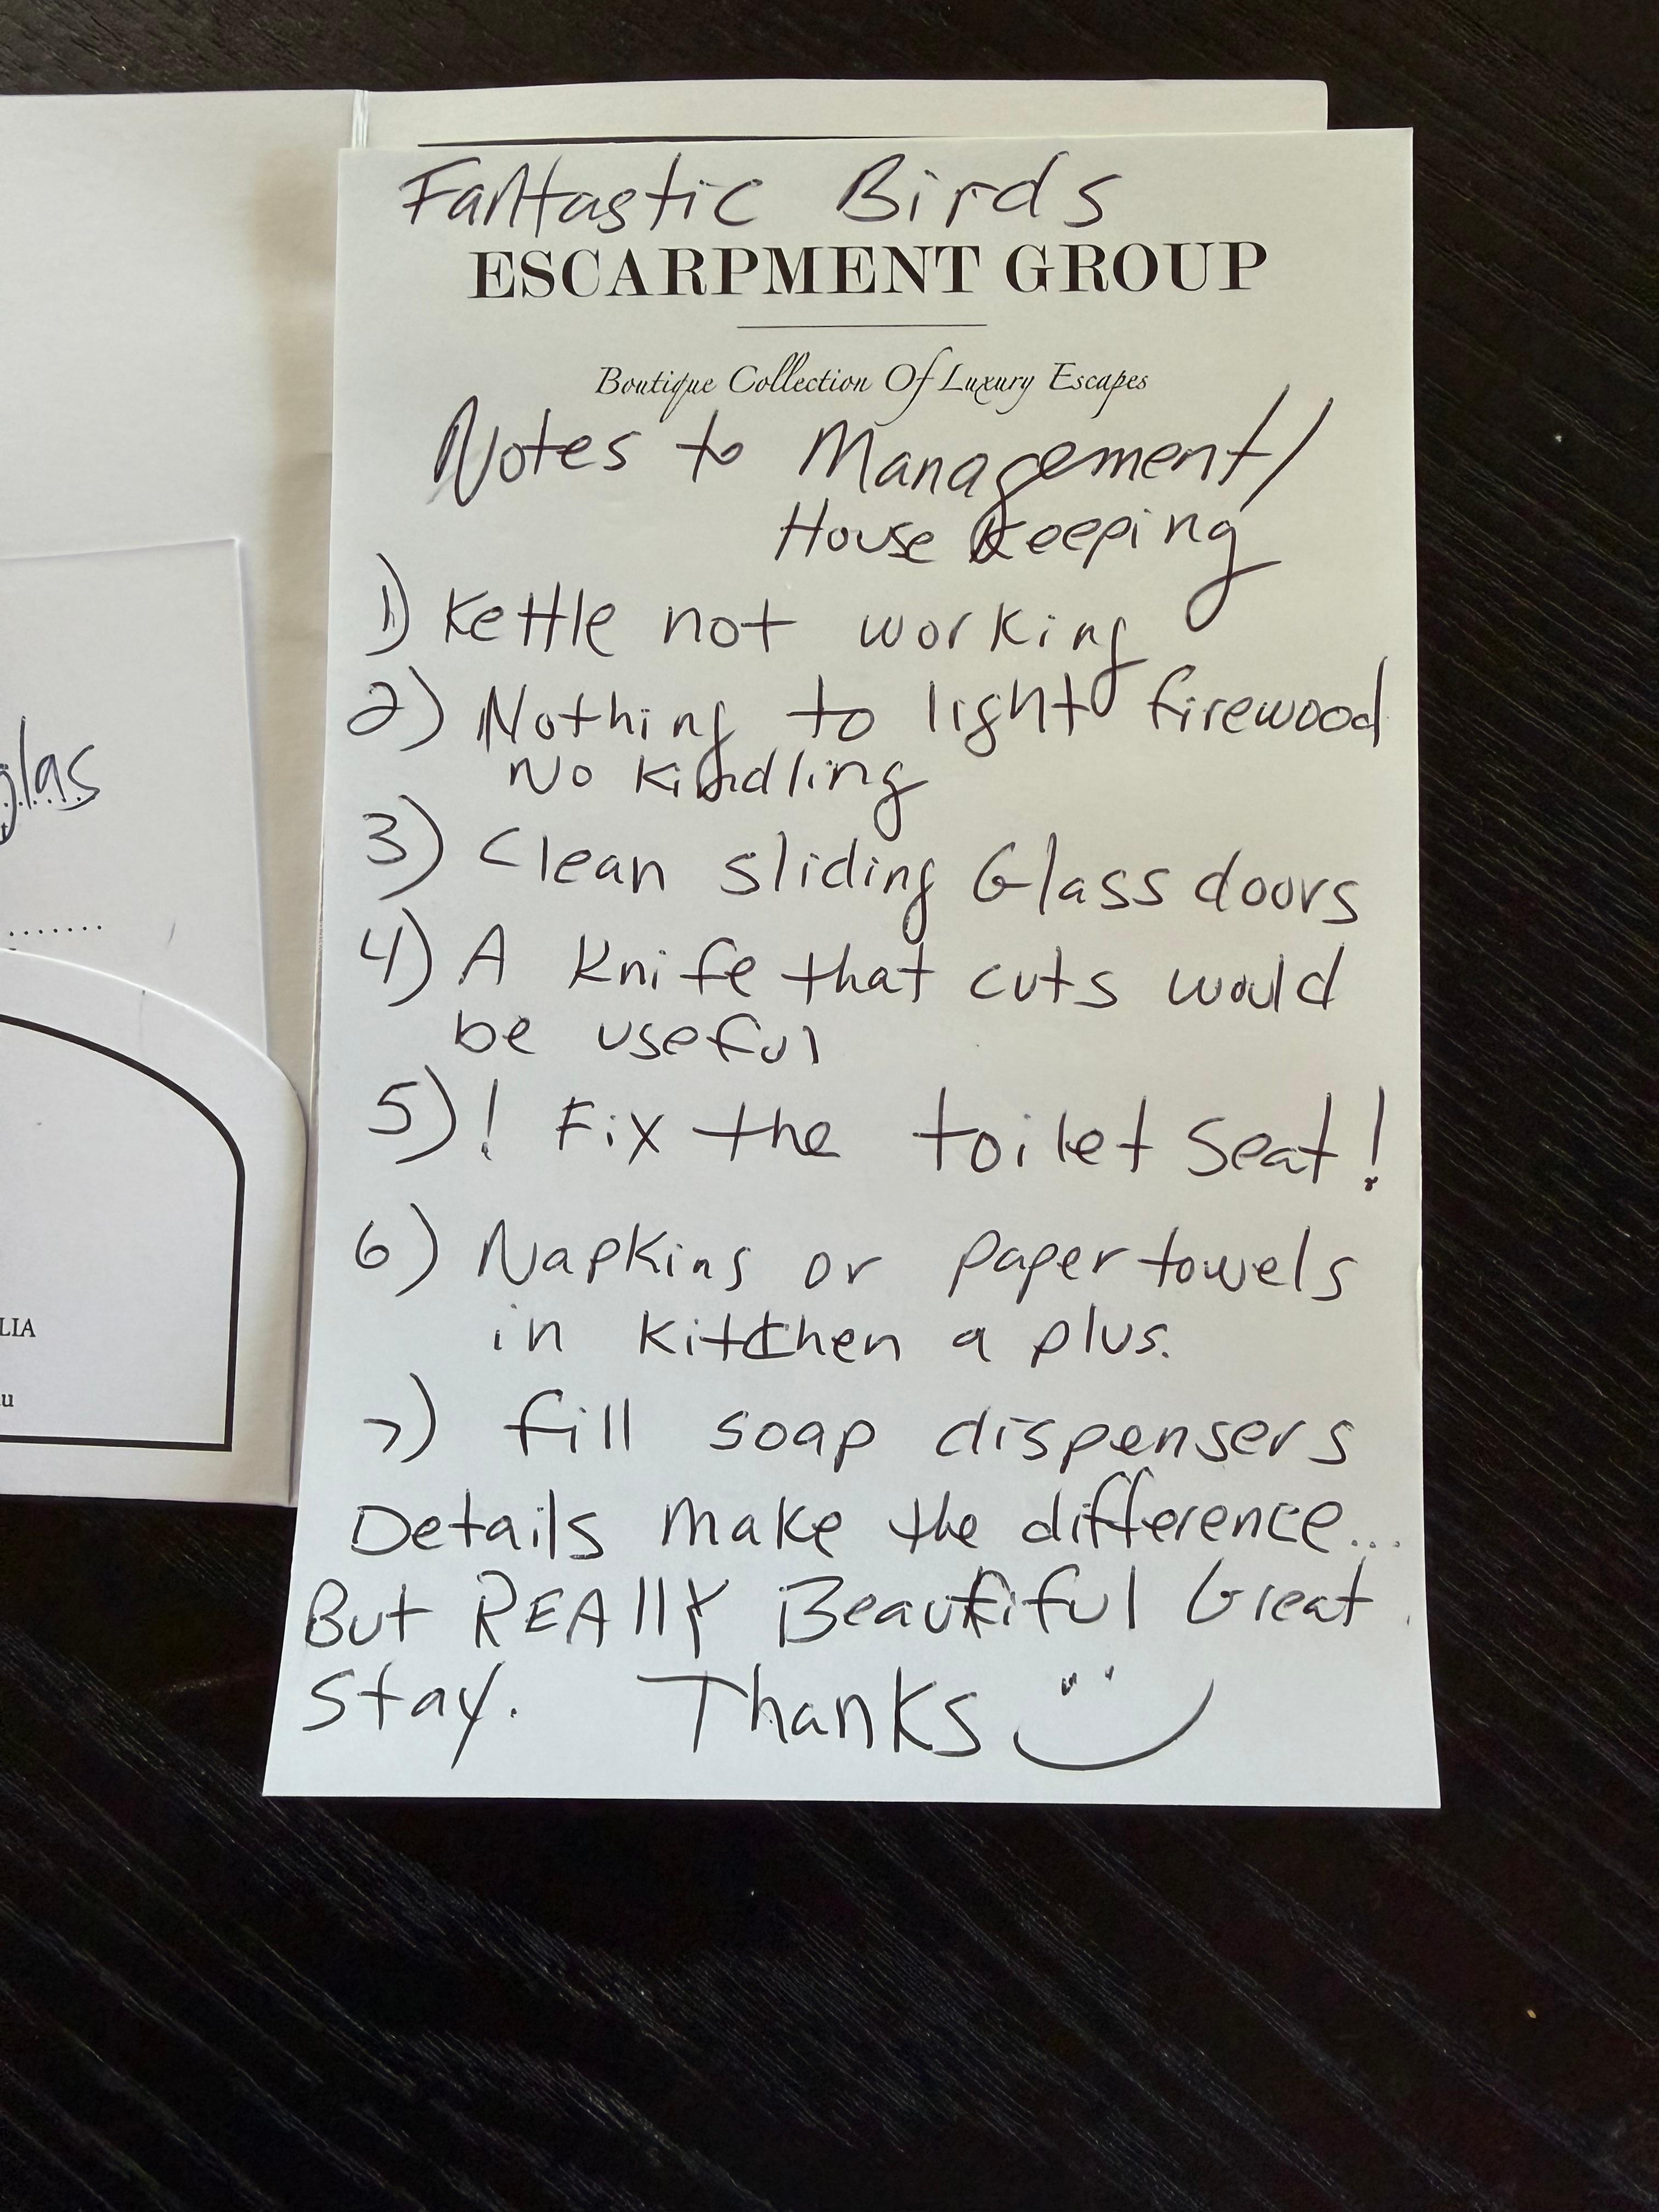 Fantastic Birds
ESCARPMENT GROUP
Boutique Collection Of Luxury Escapes
Notes to Management/
House Keeping
1) Kettle not working
2) Nothing to light firewood
No kindling
3) Clean sliding Glass doors
4) A knife that cuts would
be useful
5) ! Fix the toilet seat!
6) Napkins or paper towels
in kitchen a plus.
7) fill soap dispensers
Details make the difference...
But REAllY Beautiful Great
stay. Thanks
glas
.......
LIA
u